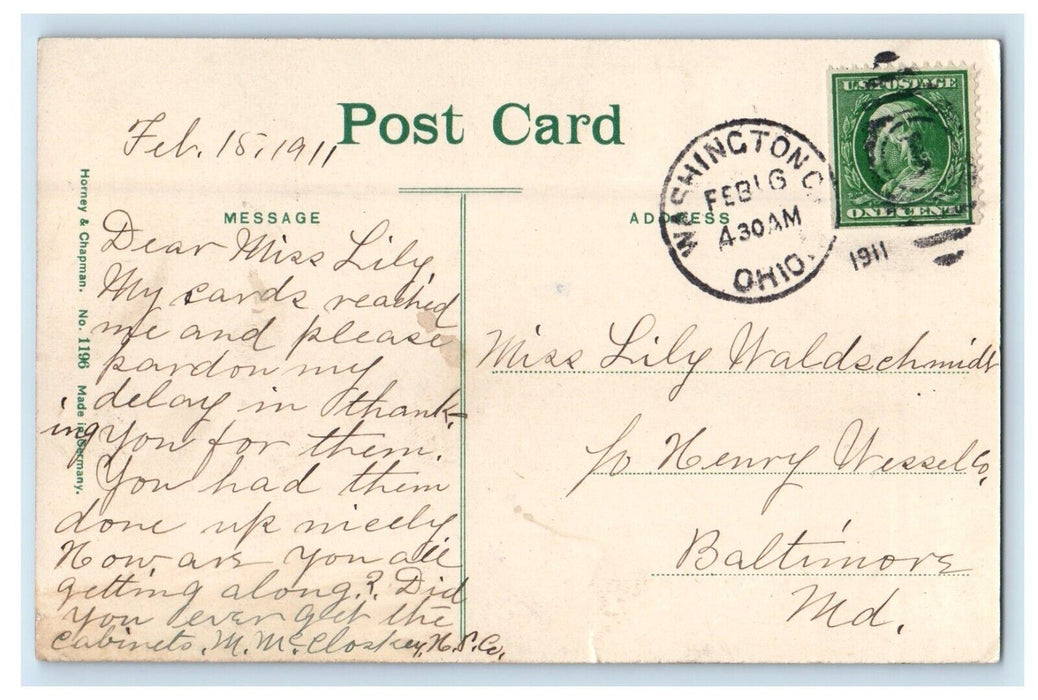 Post Card
Feb. 15, 1911
MESSAGE
Dear Miss Lily,
My cards reached
me and please
pardon my
delay in thank-
ing you for them.
You had them
done up nicely
How are you all
getting along? Did
you ever get the
cabinets. M. McCloskey, H. S. Co.
Horney & Chapman. No. 1196 Made in Germany.
ADDRESS
WASHINGTON C.
FEB 16
4 30 AM
OHIO.
1911
U.S. POSTAGE
ONE CENT
Miss Lily Waldschmidt
c/o Henry Wessel Co,
Baltimore
Md.